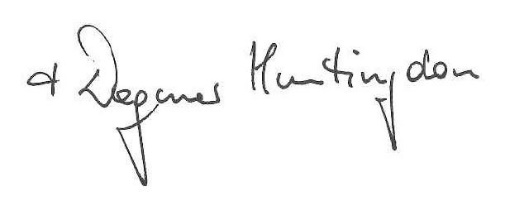 + Dagmar Huntingdon